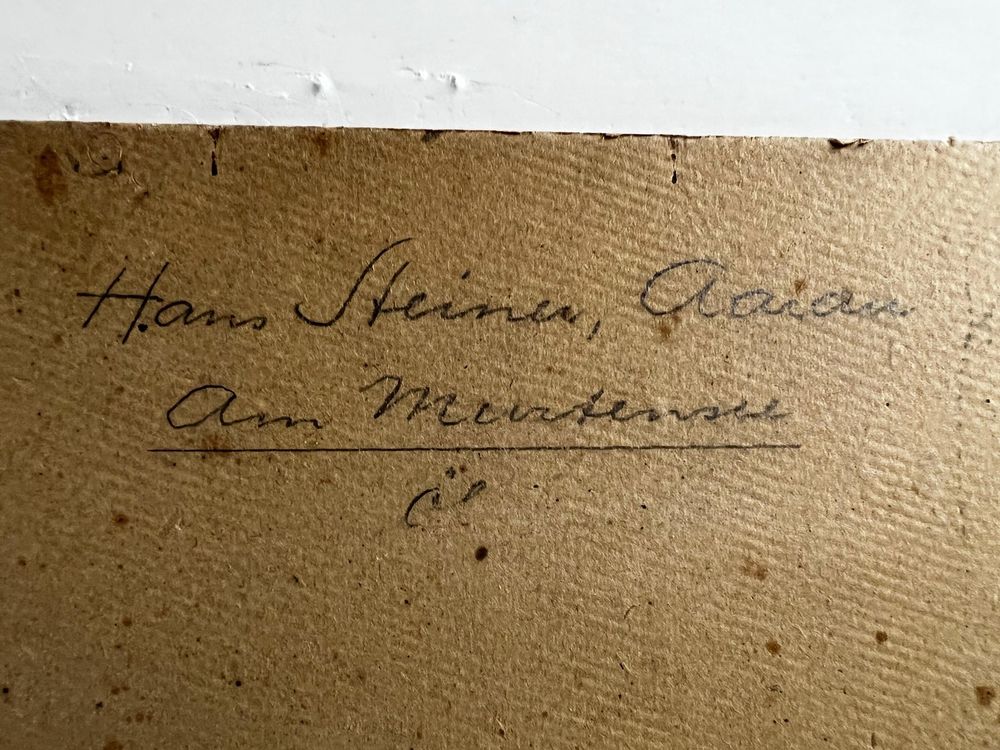 Hans Steiner, Aarau
Am Murtensee
Öl